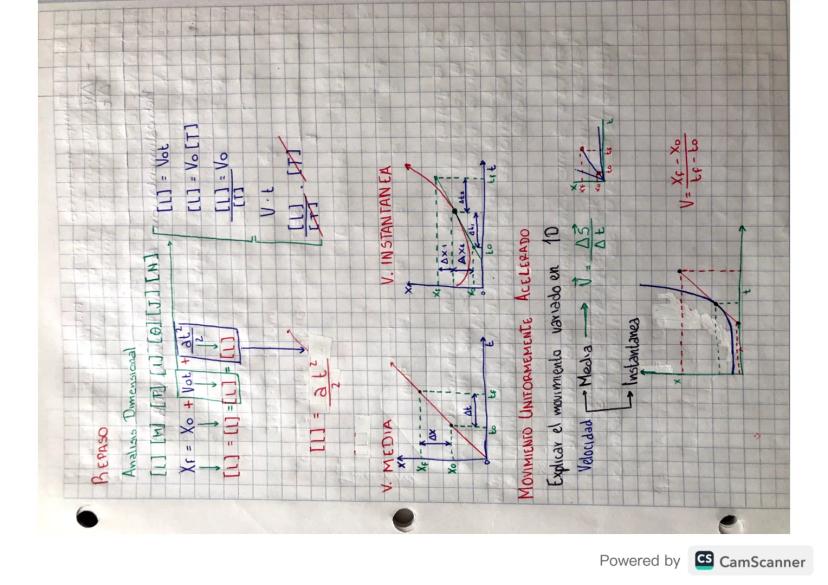 REPASO
Analisis Dimensional
[L] [M] [T] [I] [θ] [J] [N]
XF = X0 + Vot + at²/2
[L] = [L] = [L] = [L]
[L] = at²/2
[L] = Vot
[L] = Vo [T]
[L]/[T] = Vo
V · t
[L]/[T] · [T]
V. MEDIA
X
XF
X0
Δx
Δt
to
tF
t
0
V. INSTANTANEA
X
XF
X0
Δx1
Δx2
Δt1
Δt2
to
tF
t
0
MOVIMIENTO UNIFORMEMENTE ACELERADO
Explicar el movimiento variado en 1D
Velocidad Media V = Δs/Δt
Instantanea
X
XF
X0
to
tF
t
X
t
V = XF - X0/tF - to
Powered by CS CamScanner